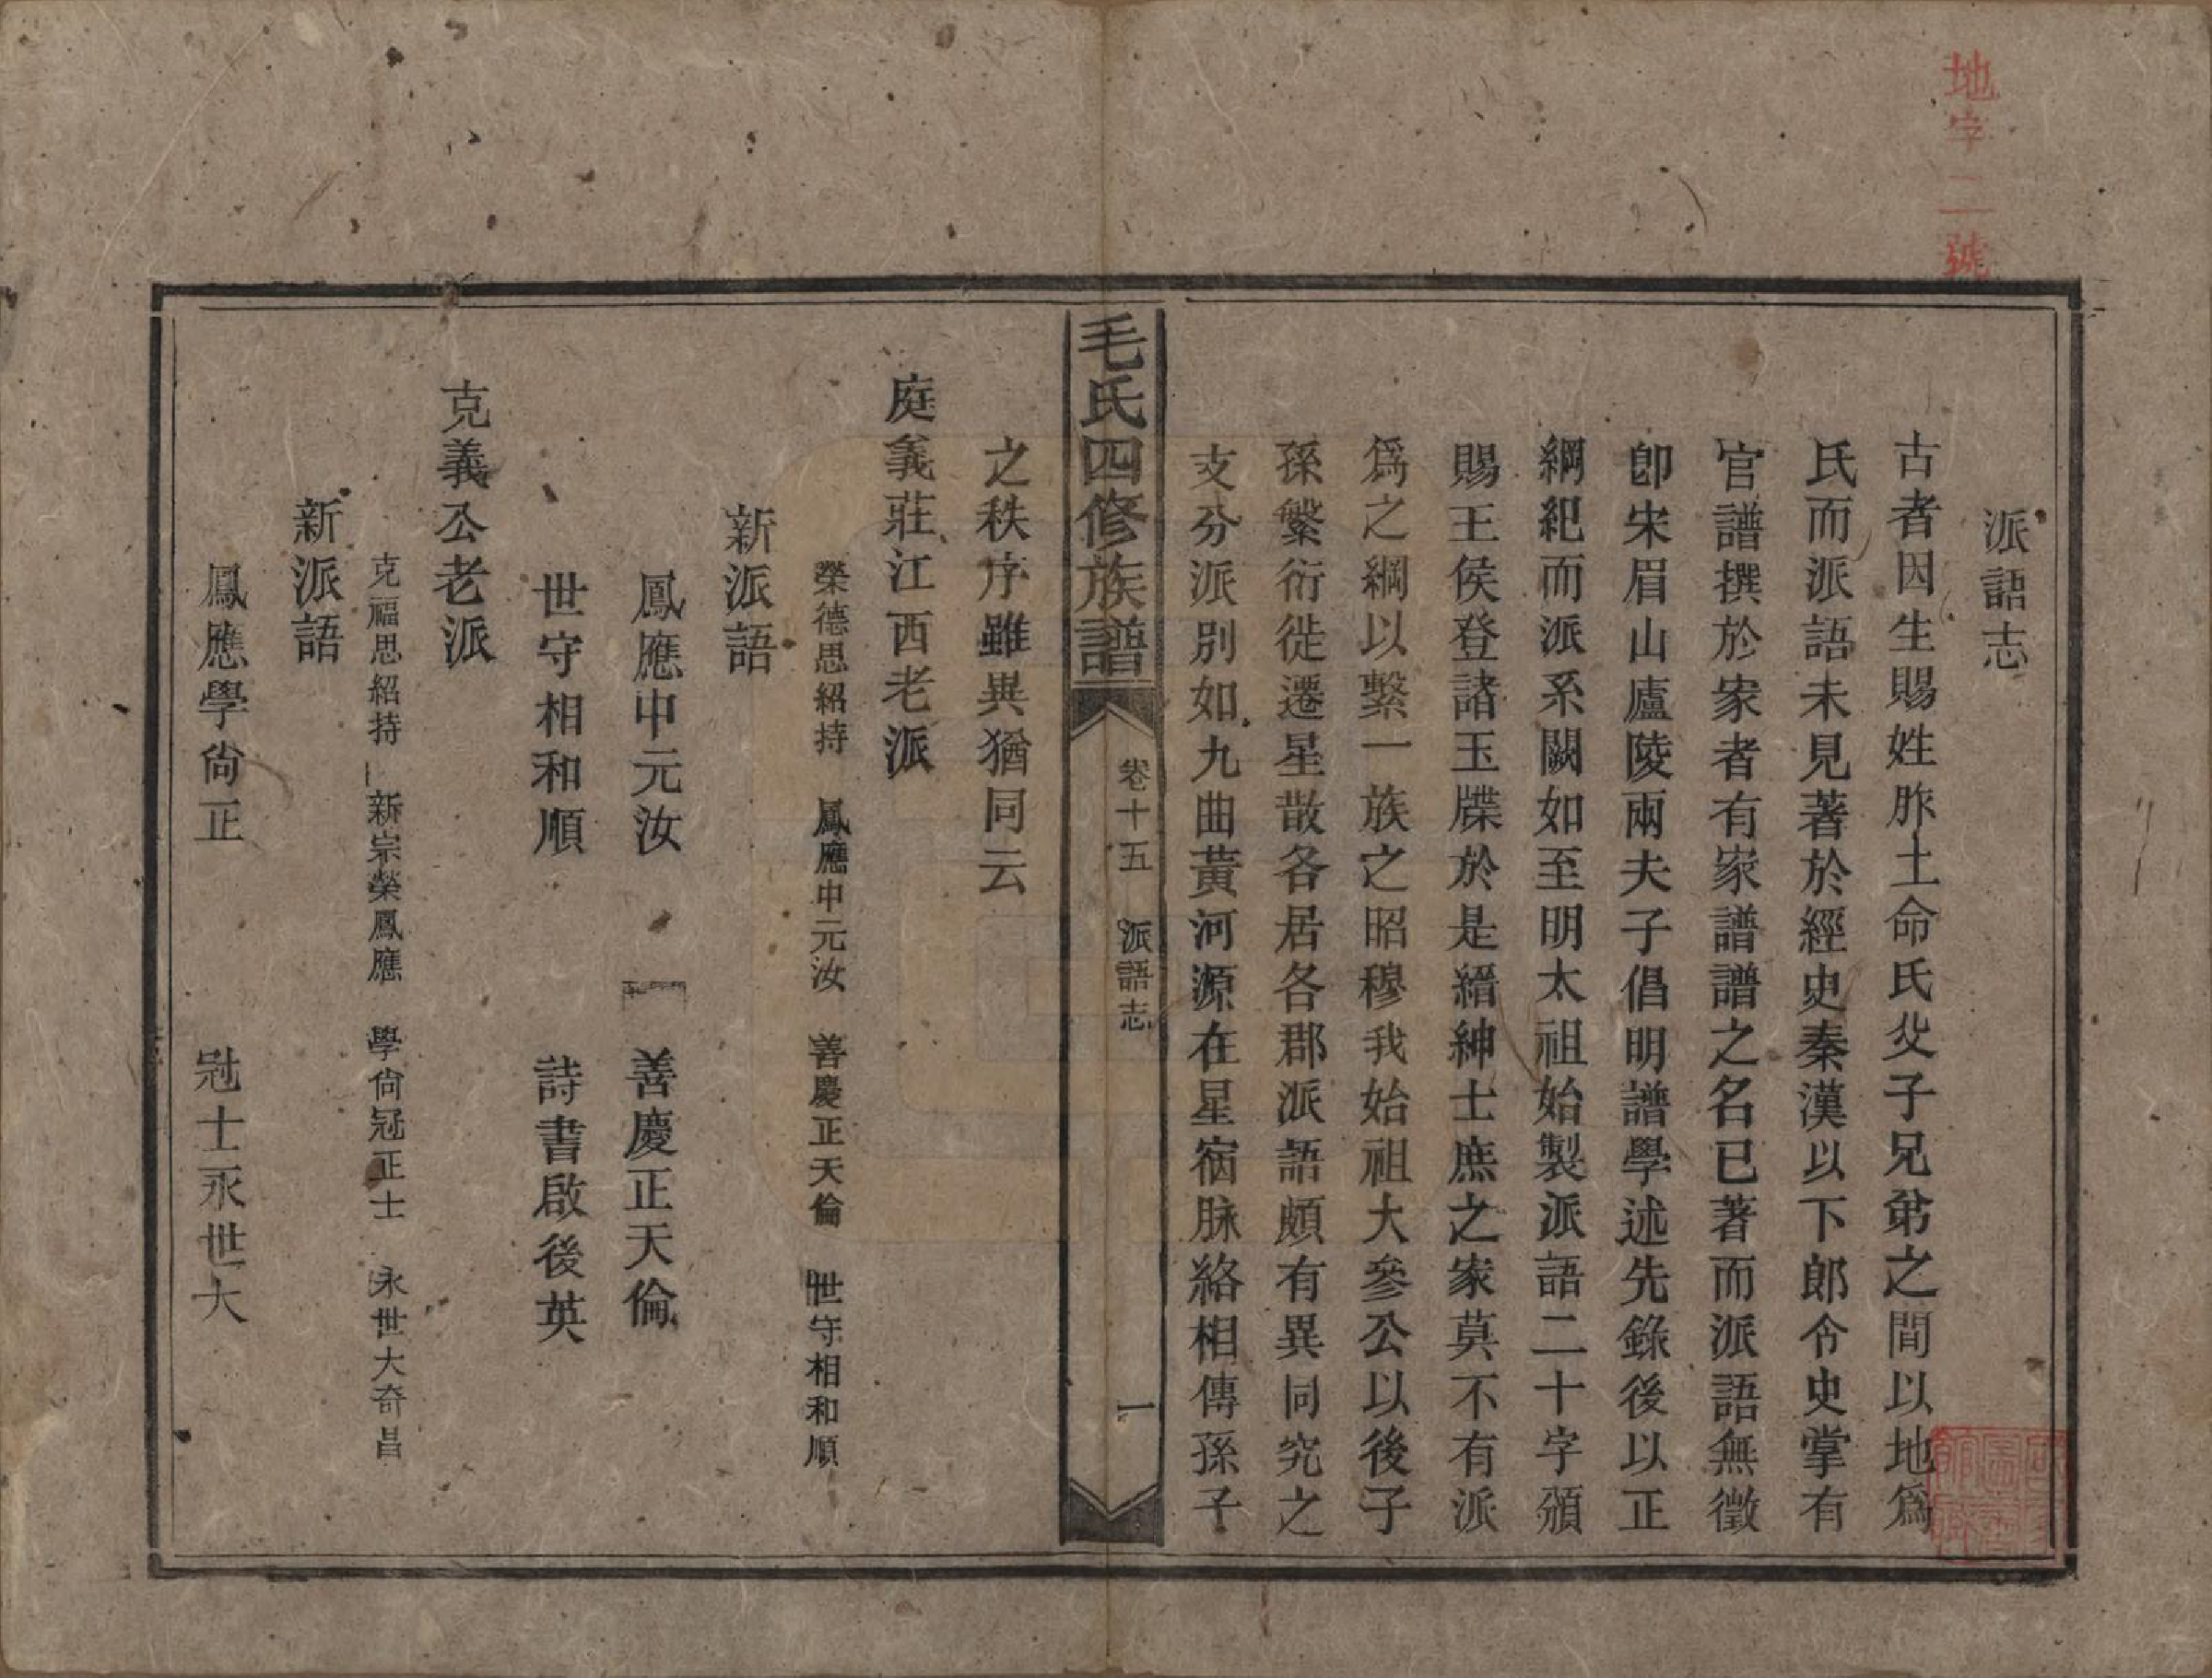 地字二號
派語志
古者因生賜姓胙土命氏父子兄弟之間以地爲
氏而派語未見著於經史秦漢以下郎令史掌有
官譜撰於家者有家譜譜之名已著而派語無徵
卽宋眉山廬陵兩夫子倡明譜學述先錄後以正
綱紀而派系闕如至明太祖始製派語二十字頒
賜王侯登諸玉牒於是縉紳士庶之家莫不有派
爲之綱以繫一族之昭穆我始祖大參公以後子
孫繁衍徙遷星散各居各郡派語頗有異同究之
支分派別如九曲黃河源在星宿脉絡相傳孫子
毛氏四修族譜
卷十五 派語志 一
之秩序雖異猶同云
庭義莊江西老派
榮德思紹持 鳳應中元汝 善慶正天倫 世守相和順
新派語
鳳應中元汝 善慶正天倫
世守相和順 詩書啟後英
克義公老派
克福思紹持 新宗榮鳳應 學尙冠正士 永世大奇昌
新派語
鳳應學尙正 冠士永世大